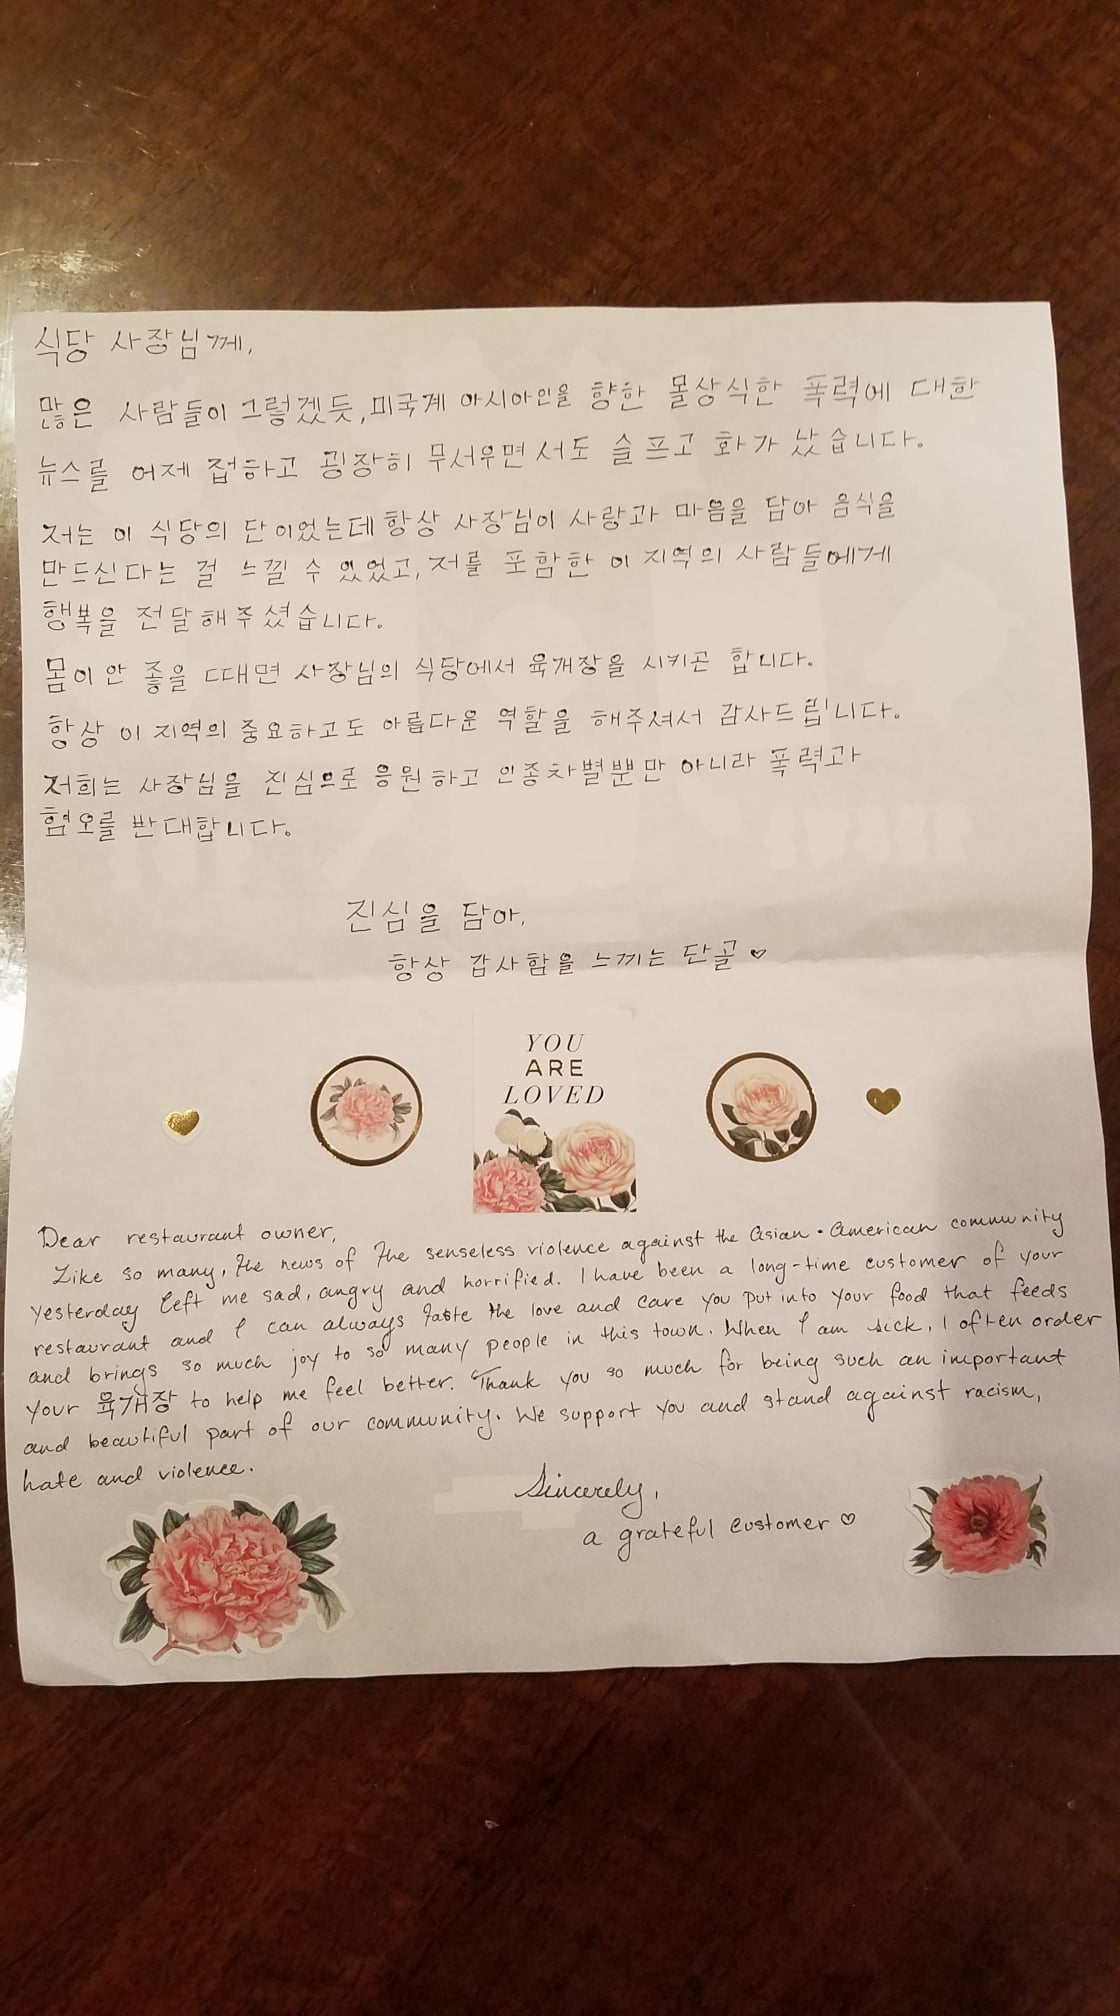 식당 사장님께,
많은 사람들이 그렇겠듯, 미국계 아시아인을 향한 몰상식한 폭력에 대한
뉴스를 어제 접하고 굉장히 무서우면서도 슬프고 화가 났습니다.
저는 이 식당의 단이었는데 항상 사장님이 사랑과 마음을 담아 음식을
만드신다는 걸 느낄 수 있었고, 저를 포함한 이 지역의 사람들에게
행복을 전달해주셨습니다.
몸이 안 좋을 때면 사장님의 식당에서 육개장을 시키곤 합니다.
항상 이 지역의 중요하고도 아름다운 역할을 해주셔서 감사드립니다.
저희는 사장님을 진심으로 응원하고 인종차별뿐만 아니라 폭력과
혐오를 반대합니다.
진심을 담아,
항상 감사함을 느끼는 단골 ♡
YOU
ARE
LOVED
Dear restaurant owner,
Like so many, the news of the senseless violence against the Asian-American community
yesterday left me sad, angry and horrified. I have been a long-time customer of your
restaurant and I can always taste the love and care you put into your food that feeds
and brings so much joy to so many people in this town. When I am sick, I often order
your 육개장 to help me feel better. Thank you so much for being such an important
and beautiful part of our community. We support you and stand against racism,
hate and violence.
Sincerely,
a grateful customer ♡